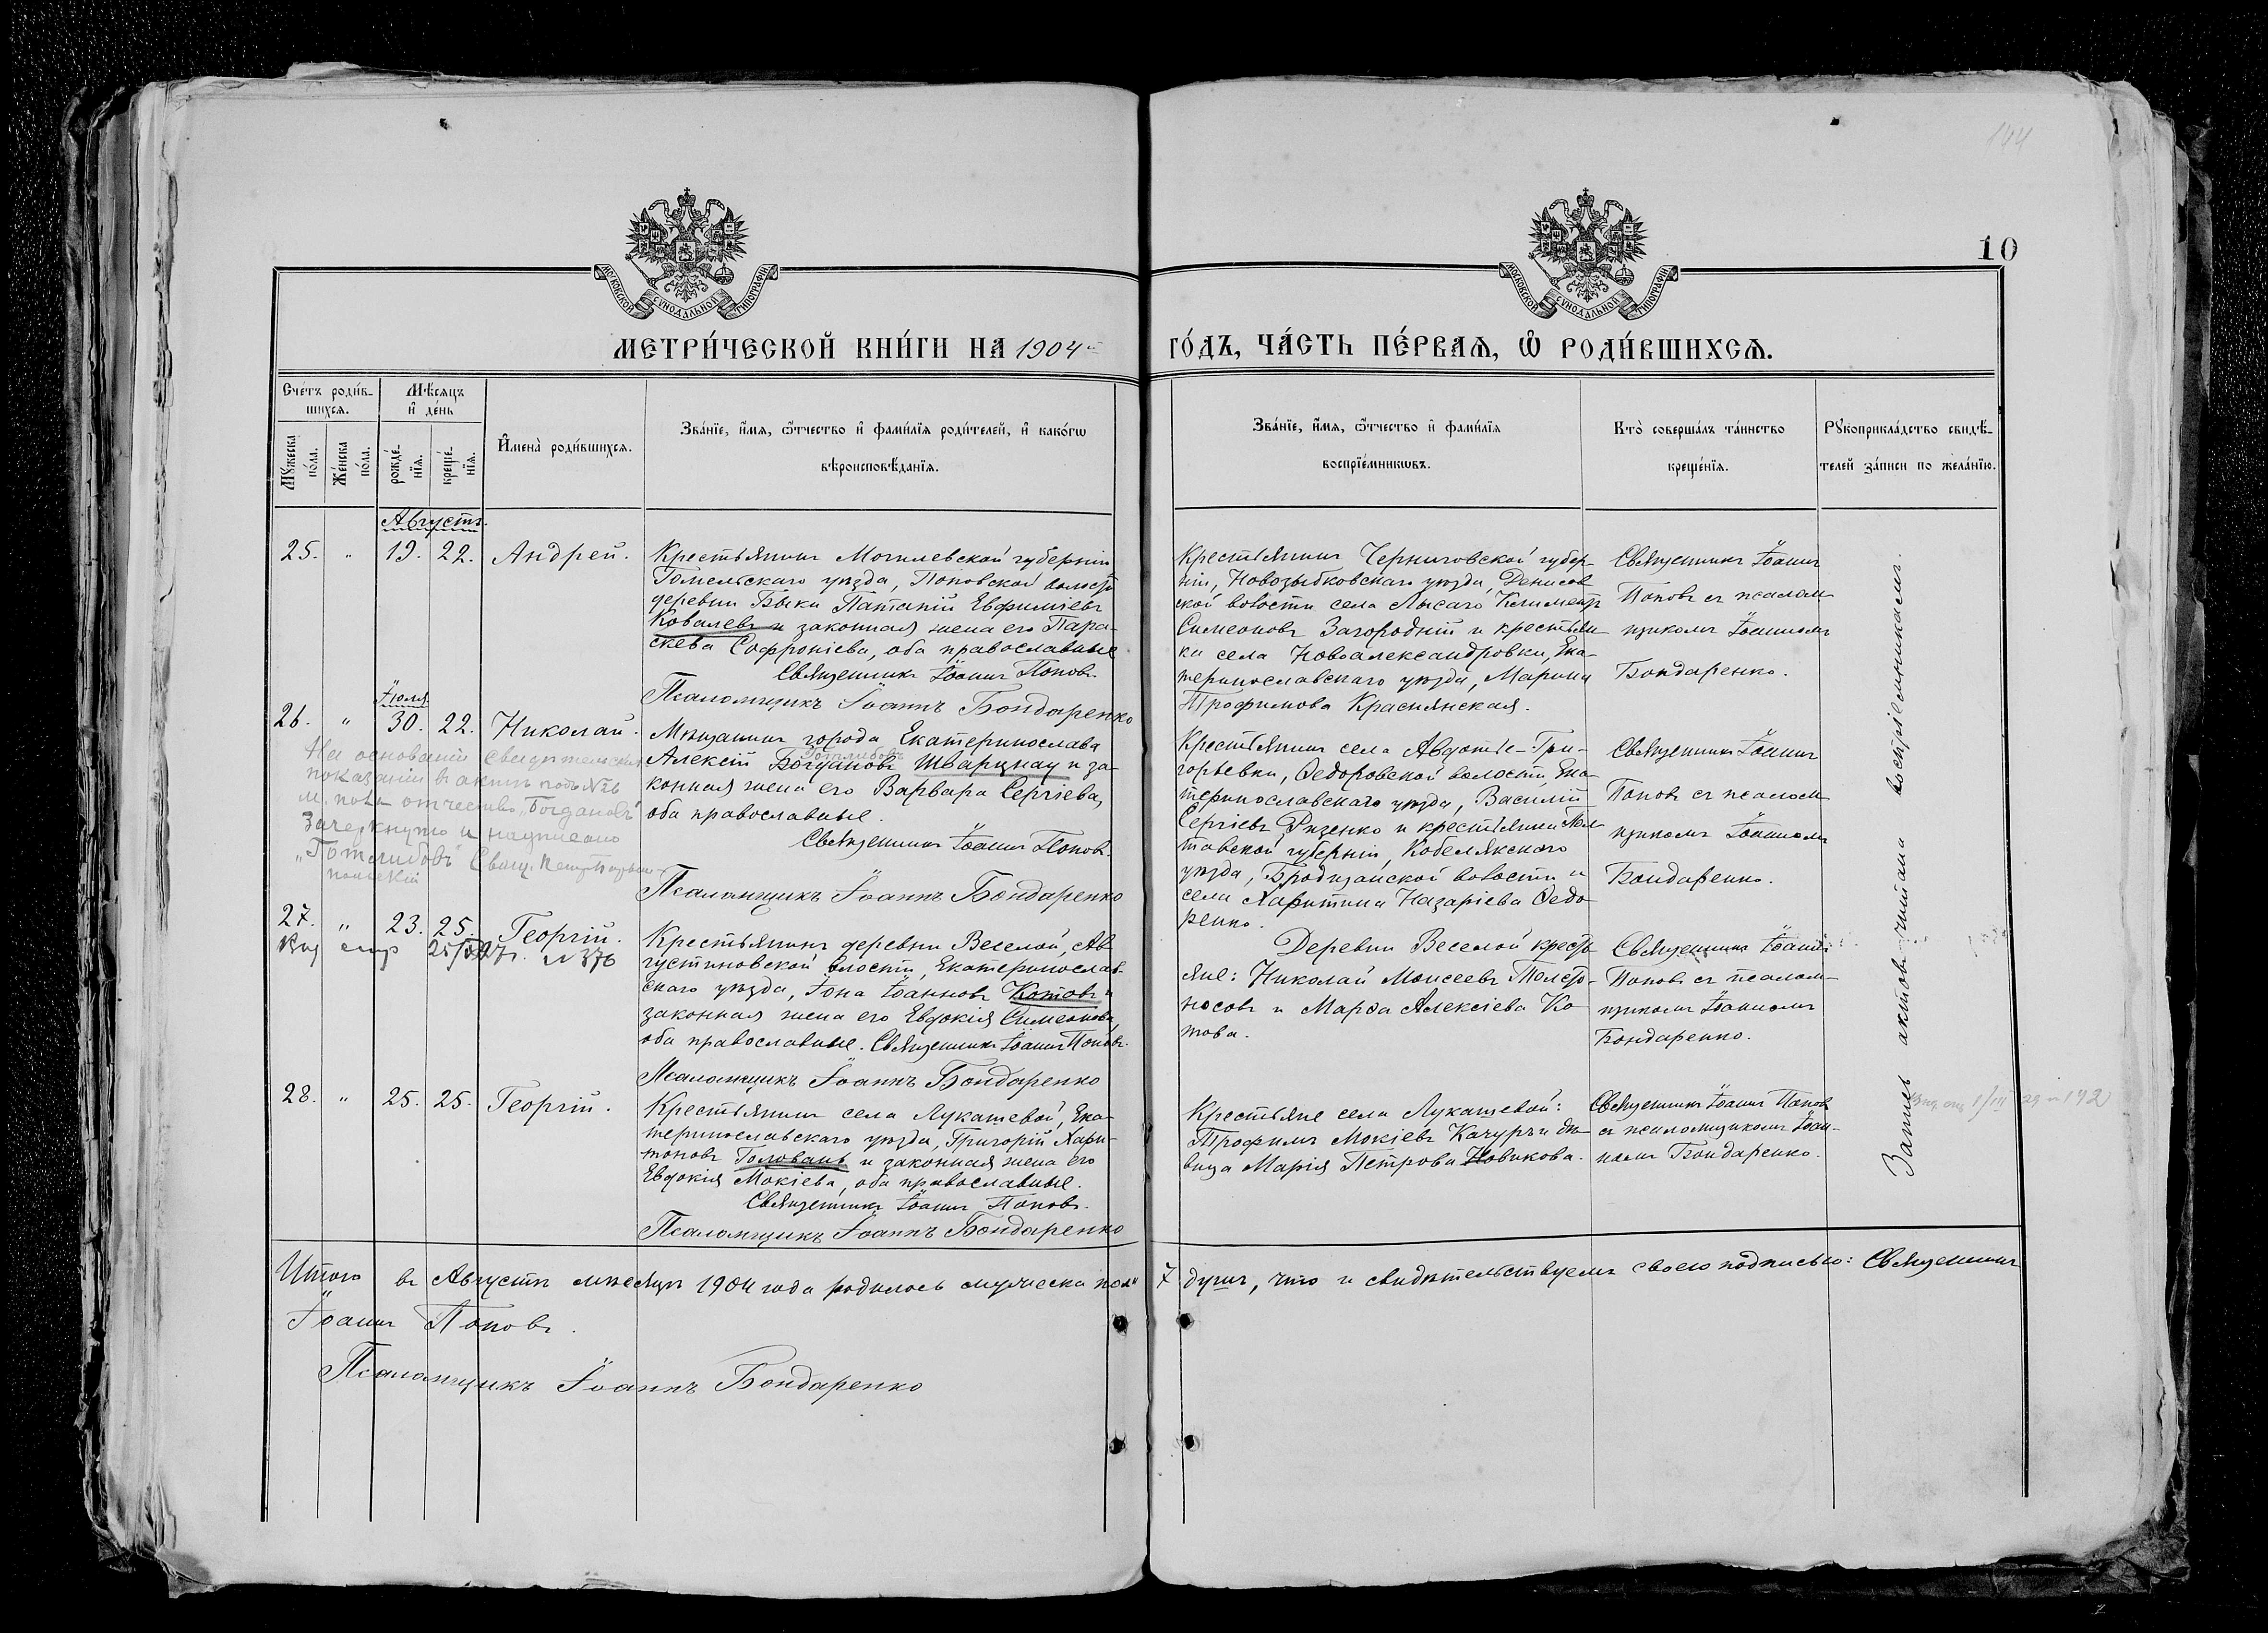 144
10
МОСКОВСКОЙ СѴНОДАЛЬНОЙ ТИПОГРАФІИ
МОСКОВСКОЙ СѴНОДАЛЬНОЙ ТИПОГРАФІИ
МЕТРИ́ЧЕСКОЙ КНИ́ГИ НА 1904 й
ГО́ДЪ, ЧА́СТЬ ПЕ́РВАѦ, Ѡ҆ РОДИ́ВШИХСѦ.
Сче́тъ роди́в-
шихсѧ.
Мꙋ́жеска по́ла.
Же́нска по́ла.
Мѣ́сѧцъ
и҆ де́нь
рожде́-
нїѧ.
креще́-
нїѧ.
И҆мена̀ роди́вшихсѧ.
Зва́нїе, и҆́мѧ, ѻ҆́тчество и҆ фами́лїѧ роди́телей, и҆ како́гѡ
вѣроисповѣ́данїѧ.
Зва́нїе, и҆́мѧ, ѻ҆́тчество и҆ фами́лїѧ
воспрїе́мникѡвъ.
Кто̀ соверша́лъ та́инство
креще́нїѧ.
Рꙋкоприкла́дство свидѣ́-
телей за́писи по жела́нїю.
Августъ.
25. " 19. 22. Андрей.
Крестьянинъ Могилевской губерніи
Гомельскаго уѣзда, Поповской волости
деревни Быки Патапій Евфиміевъ
Ковалевъ и законная жена его Пара-
скева Софроніева, оба православные
Священникъ Іоаннъ Поповъ.
Псаломщикъ Іоаннъ Бондаренко
Крестьянинъ Черниговской губер-
ніи, Новозыбковскаго уѣзда, Денисов
ской волости села Лысаго Климентъ
Симеоновъ Загородній и крестьян-
ка села Новоалександровки, Ека-
теринославскаго уѣзда, Марина
Трофимова Краснянская.
Священникъ Іоаннъ
Поповъ съ псалом
щикомъ Іоанномъ
Бондаренко.
Іюля
26. " 30. 22. Николай.
Мѣщанинъ города Екатеринослава
Готлибовъ
Алексій Богдановъ Шварцнау и за-
конная жена его Варвара Сергіева,
оба православные.
Священникъ Іоаннъ Поповъ.
Псаломщикъ Іоаннъ Бондаренко
На основаніи свидѣтельскихъ
показаній въ актѣ подъ №26
м. пола отчество „Богдановъ"
Зачеркнуто и надписано
„Готлибовъ" Свящ.
Крестьянинъ села Авдотье-Гри-
горьевки, Федоровской волости, Ека-
теринославскаго уѣзда, Василій
Сергіевъ Ризенко и крестьянка Пол
тавской губерніи, Кобелякского
уѣзда, Бродщанской волости и
села Харитина Назаріева Федо
ренко.
Священникъ Іоаннъ
Поповъ съ псалом
щикомъ Іоанномъ
Бондаренко.
27. " 23. 25. Георгій.
№ 376
Крестьянинъ деревни Веселой, Ав-
густиновской волости, Екатеринослав-
скаго уѣзда, Іона Іоанновъ Котовъ и
законная жена его Евдокія Симеонова,
оба православные. Священникъ Іоаннъ Поповъ.
Псаломщикъ Іоаннъ Бондаренко
Деревни Веселой кресть
яне: Николай Моисеевъ Толсто-
носовъ и Марѳа Алексіева Ко
това.
Священникъ Іоаннъ
Поповъ съ псалом-
щикомъ Іоанномъ
Бондаренко.
28. " 25. 25. Георгій.
Крестьянинъ села Лукашевой, Ека-
теринославскаго уѣзда, Григорій Хари-
тоновъ Головань и законная жена его
Евдокія Мокіева, оба православные.
Священникъ Іоаннъ Поповъ.
Псаломщикъ Іоаннъ Бондаренко
Крестьяне села Лукашевой:
Трофимъ Мокіевъ Качуръ и дѣ-
вица Марія Петрова Новикова.
Священникъ Іоаннъ Поповъ
съ псаломщикомъ Іоан-
номъ Бондаренко.
Запись актовъ читана воспріемникамъ.
Итого въ Августѣ мѣсяцѣ 1904 года родилось мужеска пола 7 душъ, что и свидѣтельствуемъ своею подписью: Священникъ
Іоаннъ Поповъ.
Псаломщикъ Іоаннъ Бондаренко